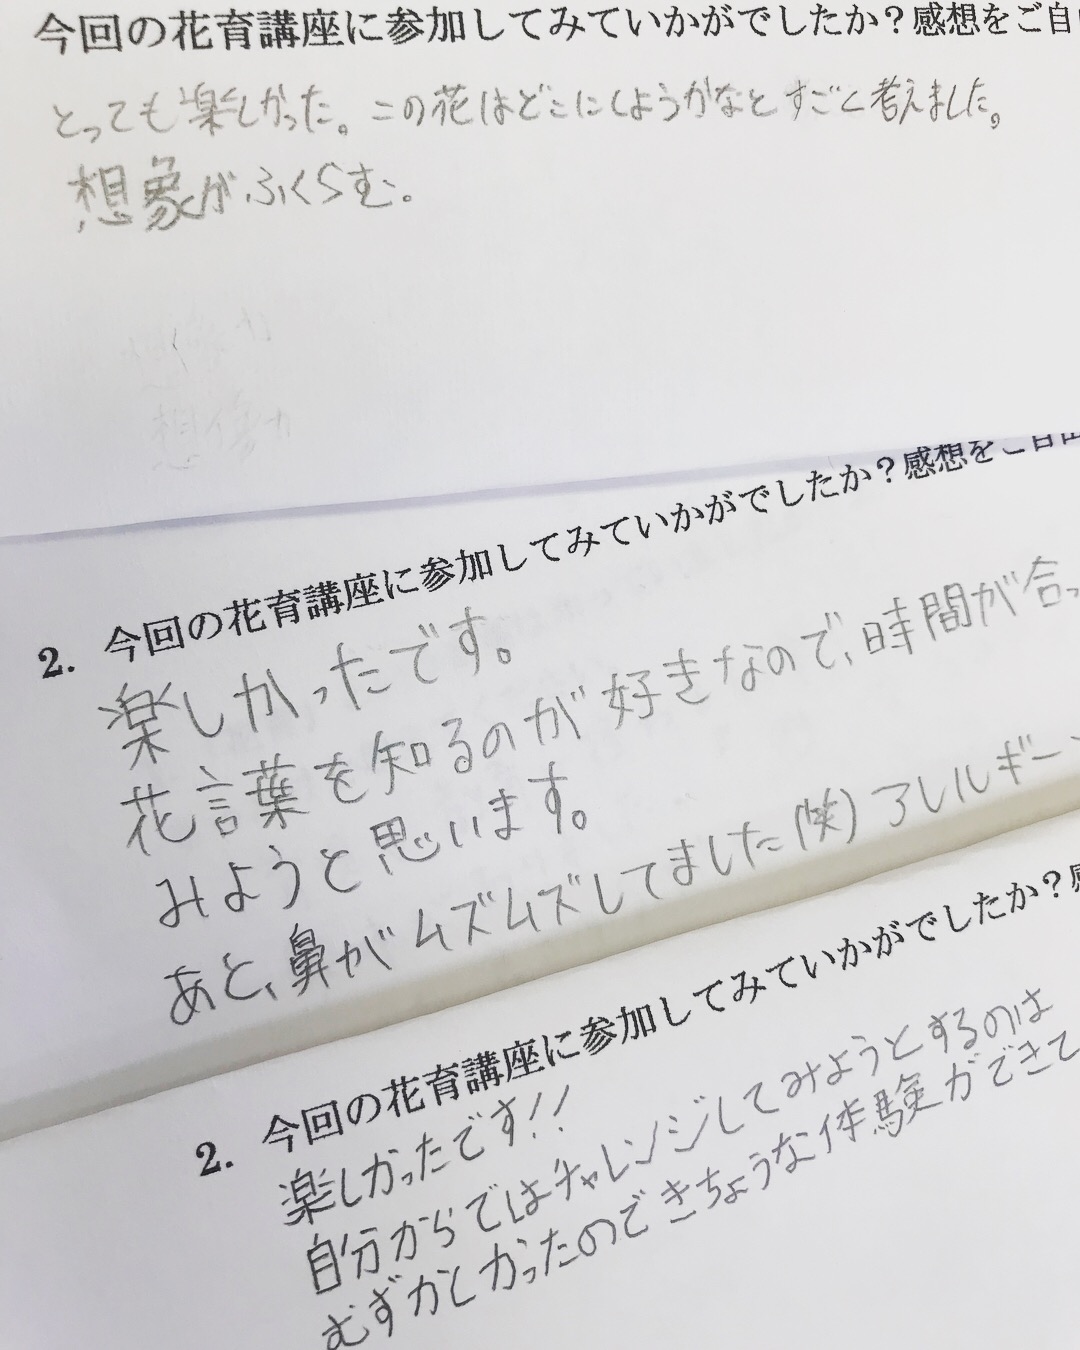 今回の花育講座に参加してみていかがでしたか？感想をご自
とっても楽しかった。この花はどこにしようかなとすごく考えました。
想象がふくらむ。
今回の花育講座に参加してみていかがでしたか？感想をご自由
2.
楽しかったです。
花言葉を知るのが好きなので、時間が合っ
みようと思います。
あと、鼻がムズムズしてました(笑)アレルギー
2. 今回の花育講座に参加してみていかがでしたか？感
楽しかったです!!
自分からではチャレンジしてみようとするのは
むずかしかったのできちょうな体験ができて